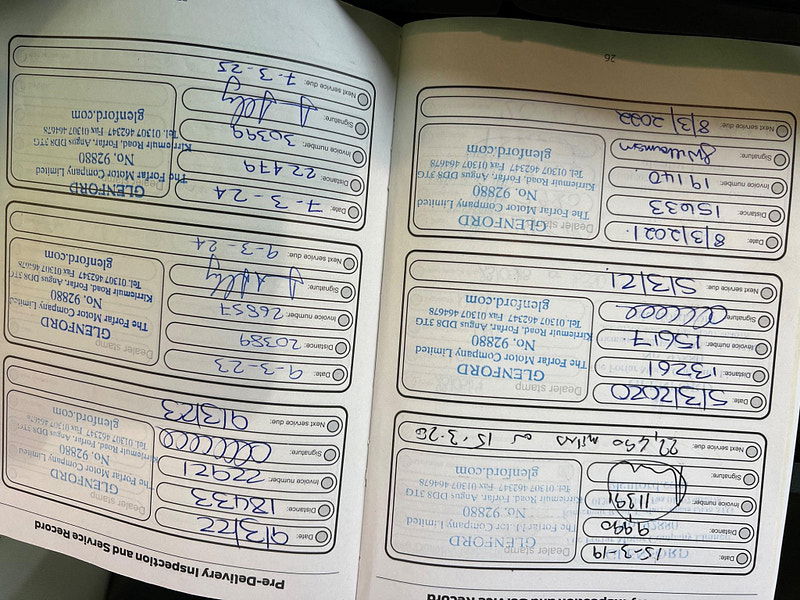 Inspection and Service Record
Date: 15-3-19
Distance: 9990
Invoice number: 11391
Signature:
Next service due: 22,450 miles or 15-3-20
Dealer stamp
GLENFORD
The Forfar Motor Company Limited
Kirriemuir Road, Forfar, Angus DD8 3TG
Tel. 01307 462347 Fax 01307 464678
glenford.com
Date: 5/3/2020
Distance:
Invoice number: 15617
Signature:
Next service due: 5/3/21
Dealer stamp
GLENFORD
The Forfar Motor Company Limited
No. 92880
Kirriemuir Road, Forfar, Angus DD8 3TG
Tel. 01307 462347 Fax 01307 464678
glenford.com
Date: 8/3/2021
Distance: 15633
Invoice number: 19140
Signature: JWilliamson
Next service due: 8/3/2022
Dealer stamp
GLENFORD
The Forfar Motor Company Limited
No. 92880
Kirriemuir Road, Forfar, Angus DD8 3TG
Tel. 01307 462347 Fax 01307 464678
glenford.com
26
Pre-Delivery Inspection and Service Record
Date: 9/3/22
Distance: 18433
Invoice number: 22921
Signature:
Next service due: 9/3/23
Dealer stamp
GLENFORD
The Forfar Motor Company Limited
No. 92880
Kirriemuir Road, Forfar, Angus DD8 3TG
Tel. 01307 462347 Fax 01307 464678
glenford.com
Date: 9-3-23
Distance: 20389
Invoice number: 26857
Signature:
Next service due: 9-3-24
Dealer stamp
GLENFORD
The Forfar Motor Company Limited
No. 92880
Kirriemuir Road, Forfar, Angus DD8 3TG
Tel. 01307 462347 Fax 01307 464678
glenford.com
Date: 7-3-24
Distance: 22479
Invoice number: 30399
Signature:
Next service due: 7-3-25
Dealer stamp
GLENFORD
The Forfar Motor Company Limited
No. 92880
Kirriemuir Road, Forfar, Angus DD8 3TG
Tel. 01307 462347 Fax 01307 464678
glenford.com